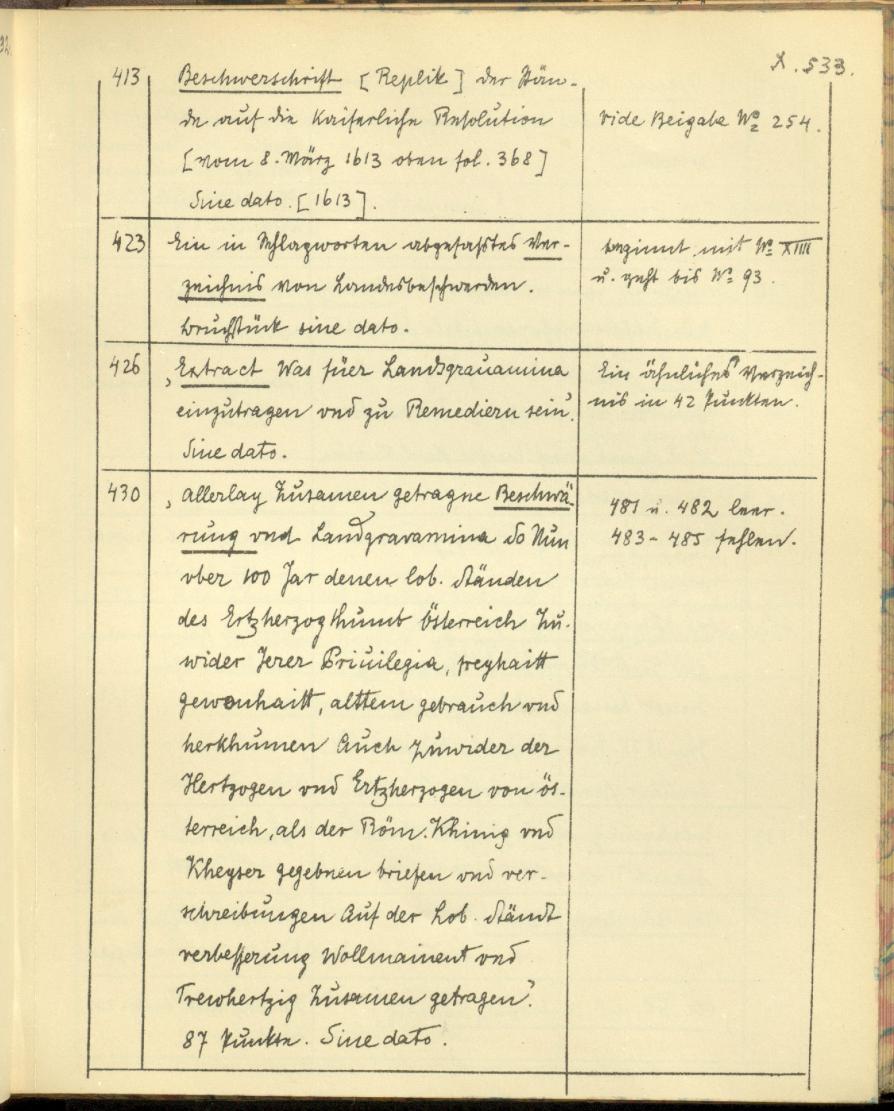 X. 533.
413 Beschwerschrift [Replik] der Stän-
de auf die Kaiserliche Resolution
[vom 8. März 1613 oben fol. 368]
Sine dato. [1613].
vide Beigabe No 254.
423 Ein in Schlagworten abgefasstes Ver-
zeichnis von Landesbeschwerden.
Bruchstück sine dato.
beginnt mit No XIIII
u. geht bis No 93.
426 „Extract Was füer Landsgrauamina
einzutragen vnd zu Remediern sein“.
Sine dato.
Ein ähnliches Verzeich-
nis in 42 Punkten.
430 „Allerlay Zusamen getragne Beschwä-
rung vnd Landgravamina So Nun
vber 100 Jar denen lob. Ständen
des Ertzherzogthumb Österreich Zu-
wider Jerer Priuilegia, freyhaitt
gewonhaitt, alttem gebrauch vnd
herkhumen Auch zuwider der
Hertzogen vnd Ertzherzogen von ös-
terreich, als der Röm. Khinig vnd
Kheyser gegebnen briefen vnd ver-
schreibungen Auf der Lob. Ständt
verbesserung Wollmainent vnd
Trewhertzig Zusamen getragen“.
87 Punkte. Sine dato.
481 u. 482 leer.
483-485 fehlen.